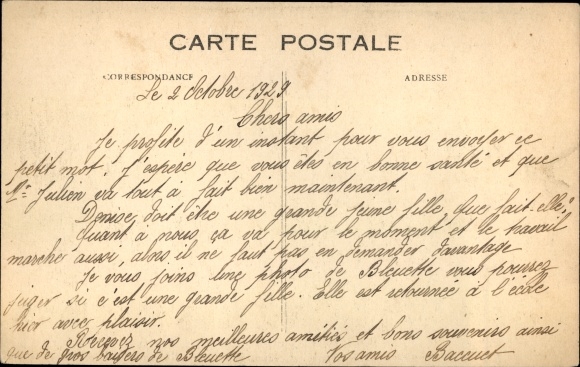 CARTE POSTALE
CORRESPONDANCE
ADRESSE
Le 2 Octobre 1929
Chers amis
Je profite d'un instant pour vous envoyer ce
petit mot. J'espère que vous êtes en bonne santé et que
Mr Julien va tout à fait bien maintenant.
Denise doit être une grande jeune fille, que fait-elle?
Quant à nous, ça va pour le moment et le travail
marche aussi, alors il ne faut pas en demander davantage
Je vous joins une photo de Bleuette vous pourrez
juger si c'est une grande fille. Elle est retournée à l'école
hier avec plaisir.
Recevez nos meilleures amitiés et bons souvenirs ainsi
que de gros baisers de Bleuette Vos amis